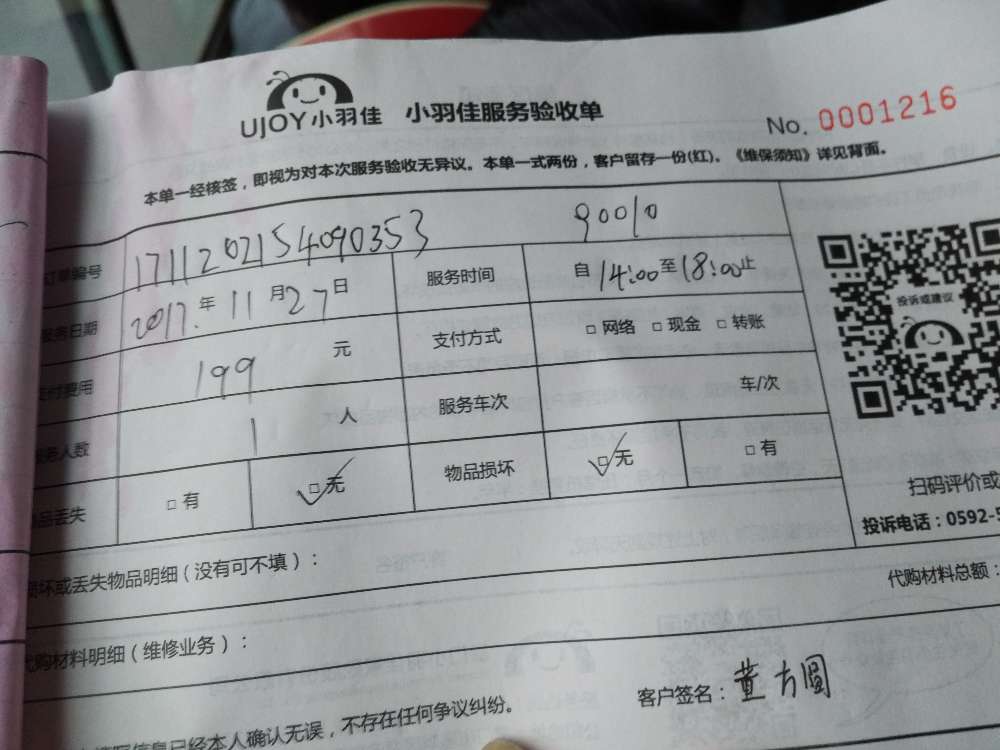 UJOY小羽佳 小羽佳服务验收单
No. 0001216
本单一经核签，即视为对本次服务验收无异议。本单一式两份，客户留存一份(红)。《维保须知》详见背面。
订单编号 171120215409035​3 90010
服务日期 2017.年11月27日 服务时间 自14:00至18:00止
支付费用 199 元 支付方式 □网络 □现金 □转账
服务人数 1 人 服务车次 车/次
物品丢失 □有 □无 物品损坏 □无 □有
投诉或建议
扫码评价或
投诉电话：0592-5
损坏或丢失物品明细（没有可不填）：
代购材料总额：
代购材料明细（维修业务）：
客户签名：董方圆
信息已经本人确认无误，不存在任何争议纠纷。